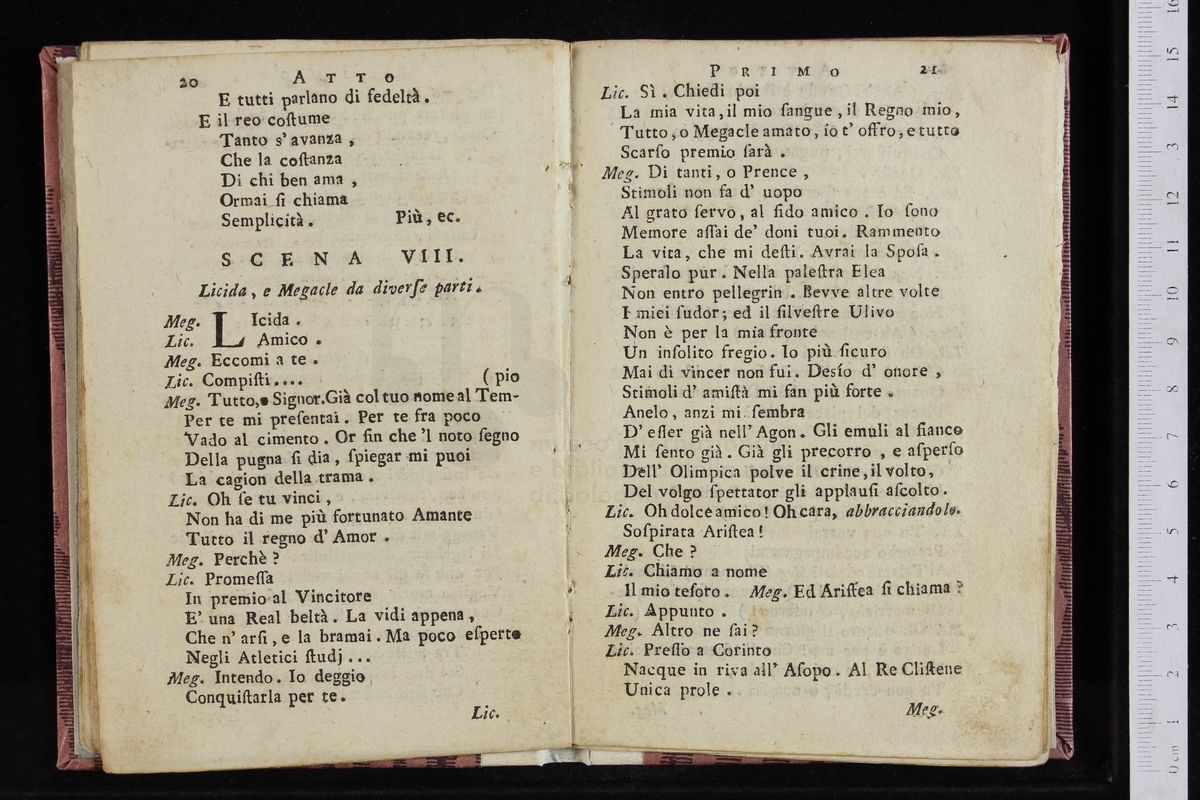 20 ATTO
E tutti parlano di fedeltà.
E il reo coſtume
Tanto s' avanza,
Che la coſtanza
Di chi ben ama,
Ormai ſi chiama
Semplicità. Più, ec.
SCENA VIII.
Licida, e Megacle da diverſe parti.
Meg. LIcida.
Lic. Amico.
Meg. Eccomi a te.
Lic. Compiſti.... (pio
Meg. Tutto, o Signor. Già col tuo nome al Tem-
Per te mi preſentai. Per te fra poco
Vado al cimento. Or fin che 'l noto ſegno
Della pugna ſi dia, ſpiegar mi puoi
La cagion della trama.
Lic. Oh ſe tu vinci,
Non ha di me più fortunato Amante
Tutto il regno d' Amor.
Meg. Perchè?
Lic. Promeſſa
In premio al Vincitore
E' una Real beltà. La vidi appena,
Che n' arſi, e la bramai. Ma poco eſperto
Negli Atletici ſtudj...
Meg. Intendo. Io deggio
Conquiſtarla per te.
Lic.
PRIMO 21
Lic. Sì. Chiedi poi
La mia vita, il mio ſangue, il Regno mio,
Tutto, o Megacle amato, io t' offro, e tutto
Scarſo premio ſarà.
Meg. Di tanti, o Prence,
Stimoli non fa d' uopo
Al grato ſervo, al fido amico. Io ſono
Memore aſſai de' doni tuoi. Rammento
La vita, che mi deſti. Avrai la Spoſa.
Speralo pur. Nella paleſtra Elea
Non entro pellegrin. Bevve altre volte
I miei ſudor; ed il ſilveſtre Ulivo
Non è per la mia fronte
Un inſolito fregio. Io più ſicuro
Mai di vincer non fui. Deſio d' onore,
Stimoli d' amiſtà mi fan più forte.
Anelo, anzi mi ſembra
D' eſſer già nell' Agon. Gli emuli al fianco
Mi ſento già. Già gli precorro, e aſperſo
Dell' Olimpica polve il crine, il volto,
Del volgo ſpettator gli applauſi aſcolto.
Lic. Oh dolce amico! Oh cara, abbracciandolo.
Soſpirata Ariſtea!
Meg. Che?
Lic. Chiamo a nome
Il mio teſoro. Meg. Ed Ariſtea ſi chiama?
Lic. Appunto.
Meg. Altro ne ſai?
Lic. Preſſo a Corinto
Nacque in riva all' Aſopo. Al Re Cliſtene
Unica prole.
Meg.
0 cm 1 2 3 4 5 6 7 8 9 10 11 12 13 14 15 16